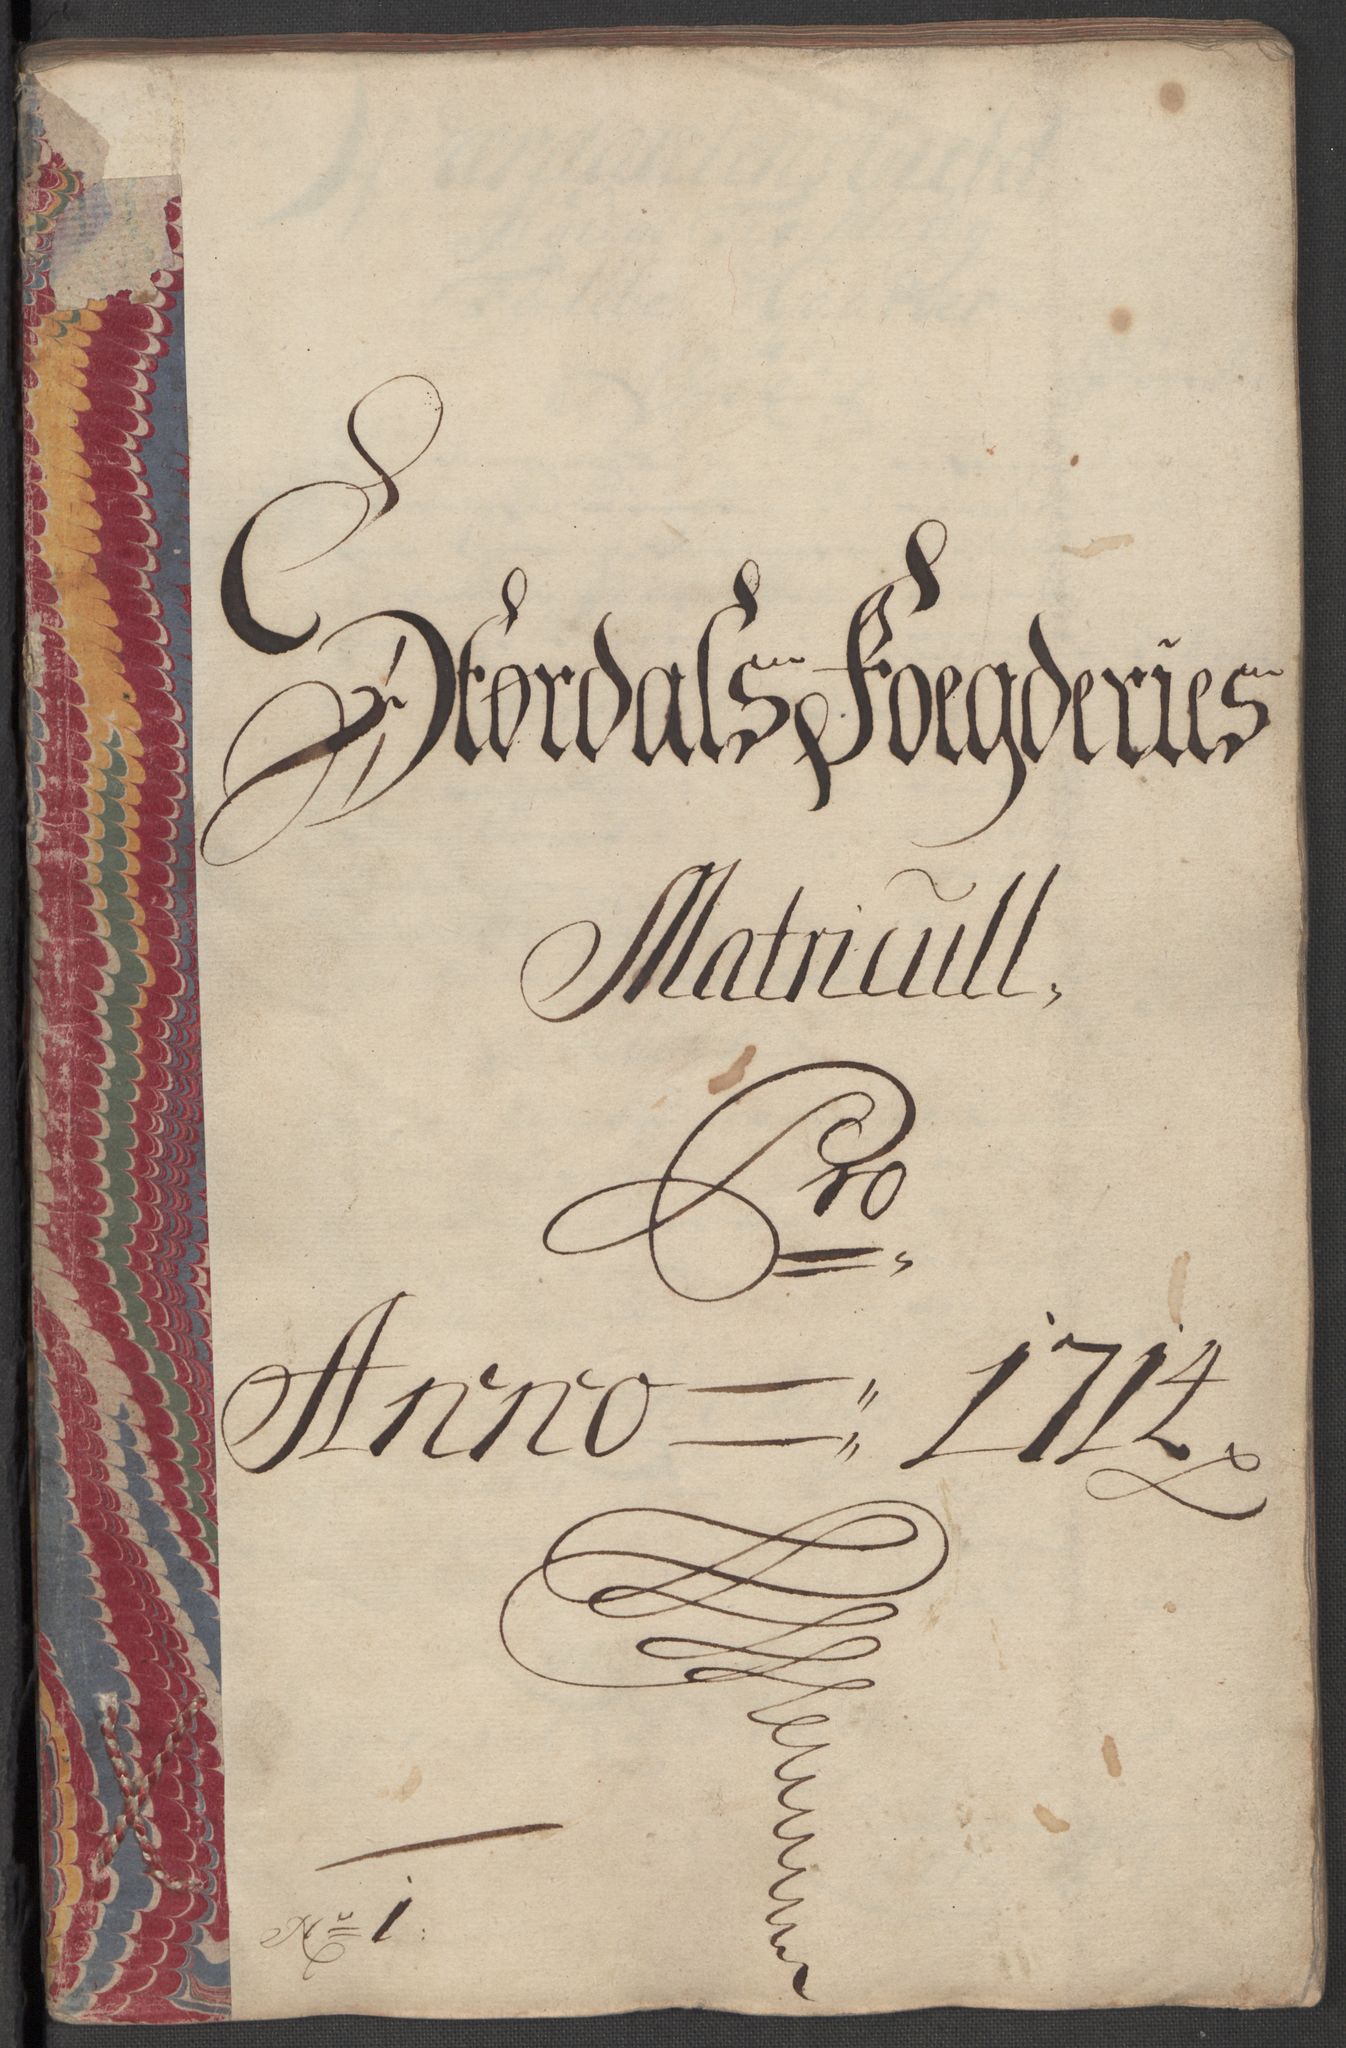 Størdals Foegderies
Matricull,
Pro
Anno 1714
No 1: